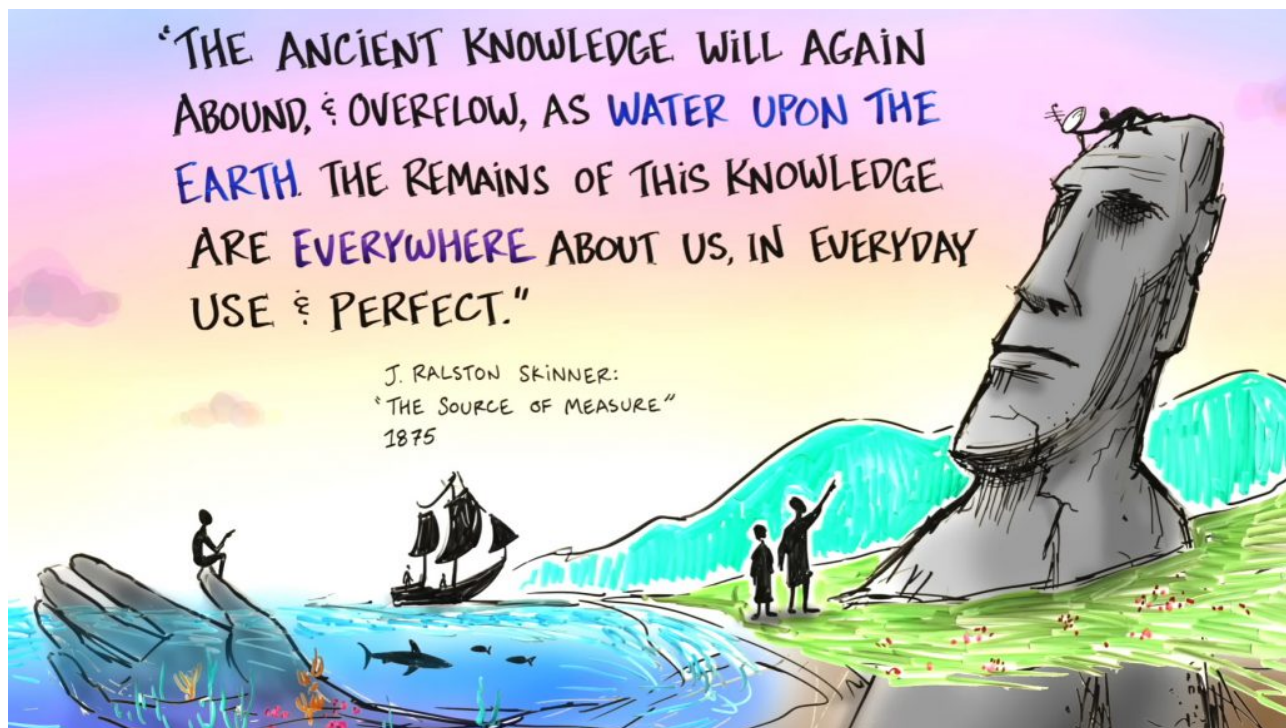 "THE ANCIENT KNOWLEDGE WILL AGAIN
ABOUND, & OVERFLOW, AS WATER UPON THE
EARTH. THE REMAINS OF THIS KNOWLEDGE
ARE EVERYWHERE ABOUT US, IN EVERYDAY
USE & PERFECT."
J. RALSTON SKINNER:
"THE SOURCE OF MEASURE"
1875